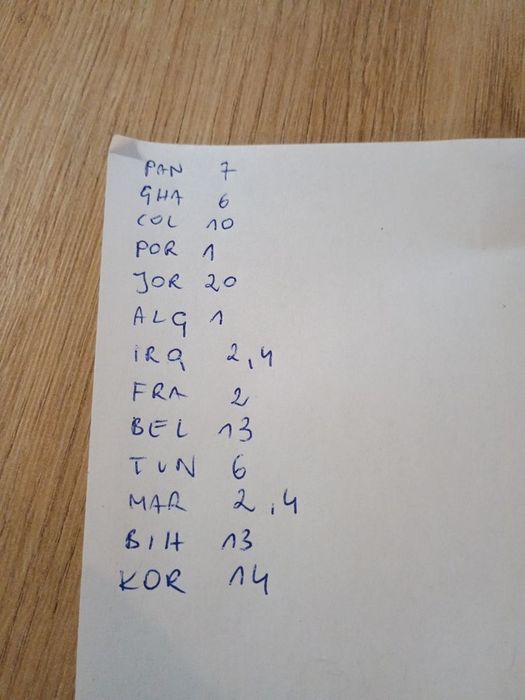 PAN 7
GHA 6
COL 10
POR 1
JOR 20
ALG 1
IRQ 2,4
FRA 2
BEL 13
TUN 6
MAR 2,4
BIH 13
KOR 14